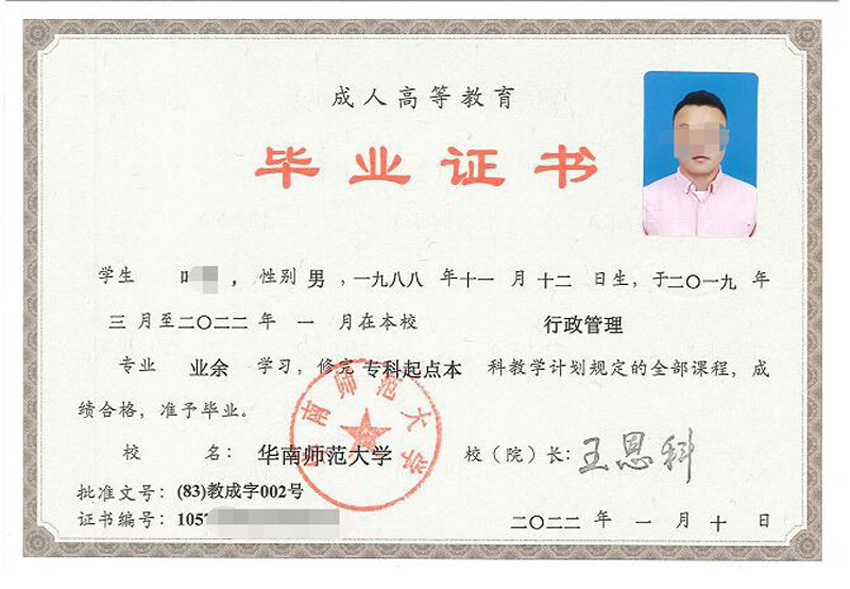 成人高等教育
毕业证书
学生 ，性别 男 ，一九八八 年十一 月 十二 日生，于二〇一九 年
三 月至二〇二二 年 一 月在本校 行政管理
专业 业余 学习，修完 专科起点本 科教学计划规定的全部课程，成
绩合格，准予毕业。
校 名： 华南师范大学 校（院）长：王恩科
华南师范大学
批准文号：(83)教成字002号
证书编号：1057
二〇二二 年 一 月 十 日